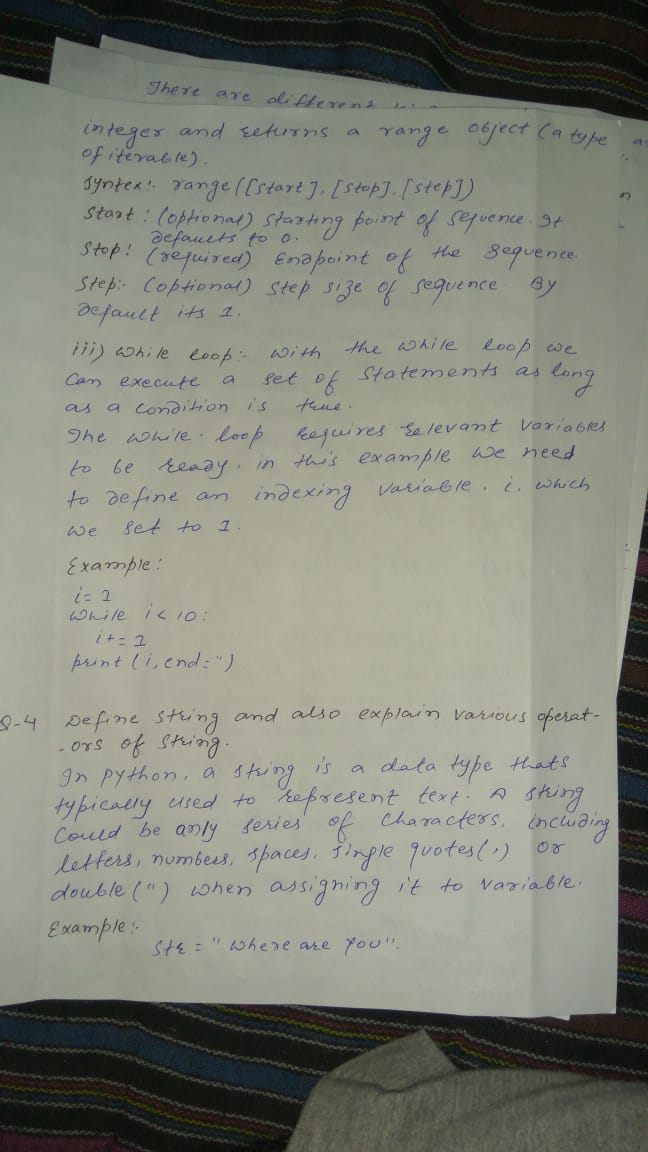 There are different
integer and returns a range object (a type
of iterable).
Syntex:- range([start], [stop], [step])
Start : (optional) starting point of sequence. It
defaults to 0.
Stop: (required) Endpoint of the sequence.
Step:- (optional) step size of sequence. By
default its 1.
iii) while loop:- with the while loop we
can execute a set of statements as long
as a condition is true.
The while loop requires relevant variables
to be ready, in this example we need
to define an indexing variable, i, which
we set to 1.
Example:
i= 1
while i< 10:
i+= 1
print (i, end='')
Q-4 Define string and also explain various operat-
-ors of string.
In python, a string is a data type thats
typically used to represent text. A string
could be any series of characters, including
letters, numbers, spaces, single quotes(') or
double (") when assigning it to variable.
Example:-
Str = "where are you".